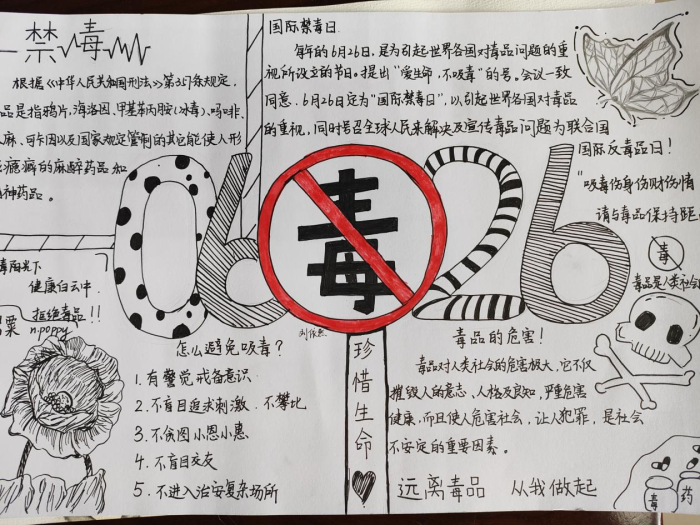 禁毒
根据《中华人民共和国刑法》第357条规定,
品是指鸦片,海洛因、甲基苯丙胺(冰毒)、吗啡、
麻、可卡因以及国家规定管制的其它能使人形
瘾癖的麻醉药品和
神药品。
国际禁毒日
每年的6月26日,是为引起世界各国对毒品问题的重
视所设立的节日。提出“爱生命,不吸毒”的号。会议一致
同意、6月26定为“国际禁毒日”,以引起世界各国对毒品
的重视,同时号召全球人民来解决及宣传毒品问题为联合国
国际反毒品日!
“吸毒伤身伤财伤情
请与毒品保持距
毒
毒品是人类社会
06 毒 26
阳光下
健康白云中.
拒绝毒品!!
n.poppy
粟
怎么避免吸毒?
1.有警觉戒备意识.
2.不盲目追求刺激.不攀比
3.不贪图小恩小惠
4.不盲目交友
5.不进入治安复杂场所
珍惜生命
毒品的危害!
毒品对人类社会的危害极大,它不仅
摧毁人的意志、人格及良知,严重危害
健康,而且使人危害社会,让人犯罪,是社会
不安定的重要因素。
远离毒品 从我做起
毒 药